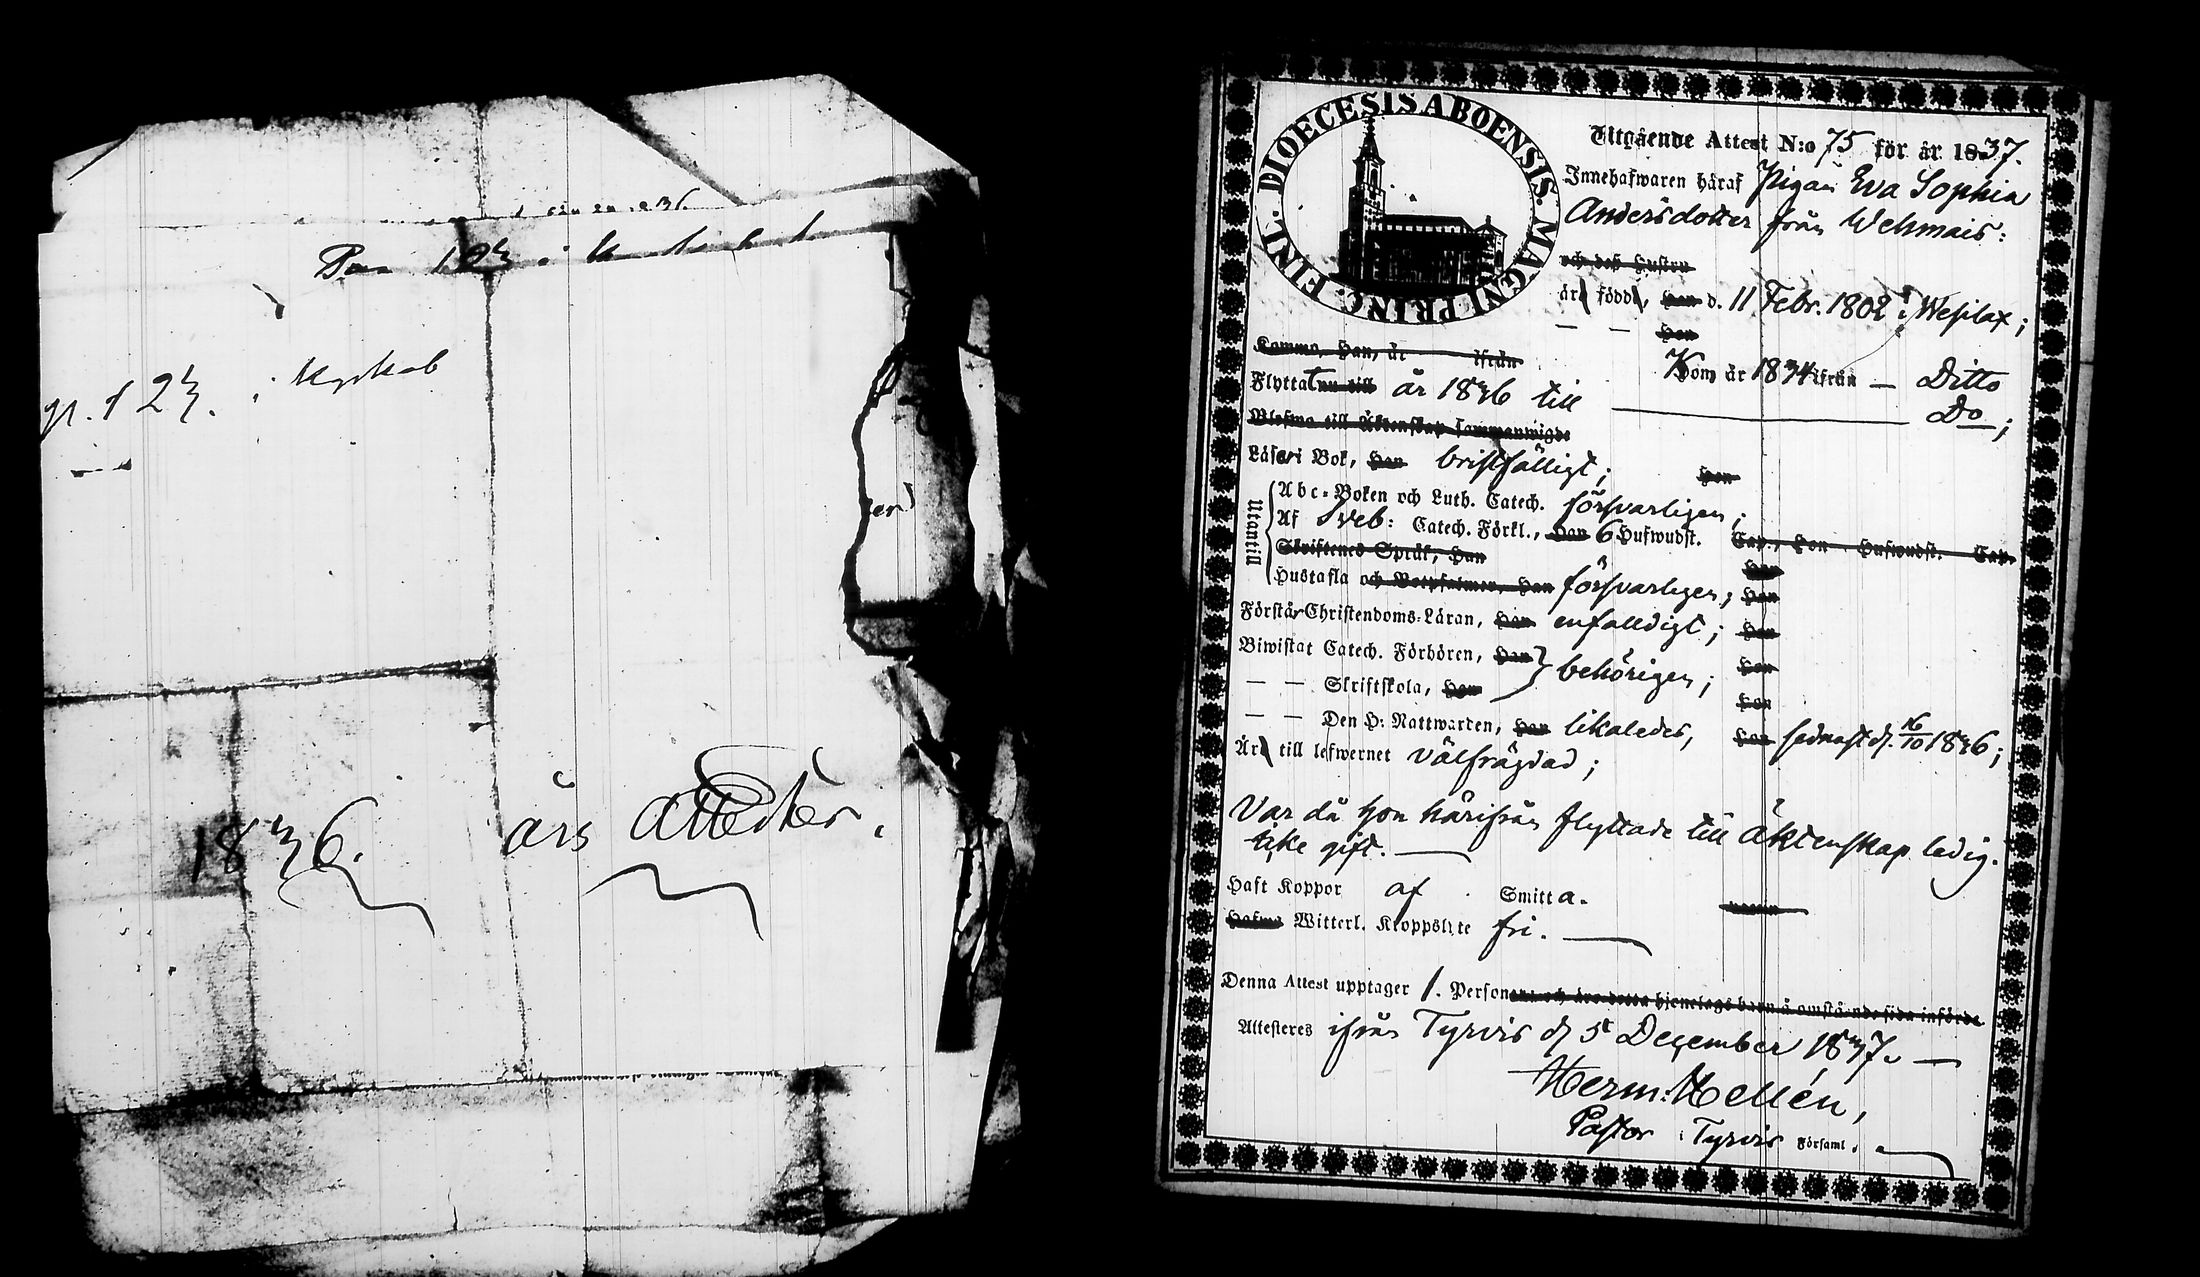 gr. 123. i Kyrkab
1836. års attester.
DIOECESIS ABOENSIS. MAGNI PRINC. FINL.
Utgående Attest N:o 75 för år 1837.
Innehafwaren häraf Pigan Eva Sophia
Andersdotter från Wehmais:
och deß Hustru
äro född, han d. 11 Febr. 1802 i Wesilax;
— — Hon
Komma, han, år ifrån Kom år 1834 ifrån — Ditto
Flyttat nu till år 1836 till Do;
Blefwo till Äktenskap sammanwigde
Läser i Bok, han bristfälligt; hon
Utantill
Abc-Boken och Luth. Catech. försvarligen;
Af Sveb: Catech. Förkl., han 6 Hufwudst. Cap., hon Hufwudst. Cap.
Skriftenes Språk, han hon
Hustafla och Botpsalmen, han försvarligen; hon
Förstår Christendoms-Läran, han enfaldigt; hon
Biwistat Catech. Förhören, han behörigen; hon
— — Skriftskola, han hon
— — Den H: Nattwarden, han likaledes, hon sednast d. 16/10 1836;
Äro till lefwernet välfrägdad;
Var då hon härifrån flyttade till äktenskap ledig.
icke gift.
Haft Koppor af Smitta.
Hafwa Witterl. Kroppslyte fri.
Denna Attest upptager 1. Personer och äro detta hjonelags barn å omstående sida införde
Attesteres ifrån Tyrvis d. 5 December 1837.
Herm: Hellén,
Pastor i Tyrvis Församl.